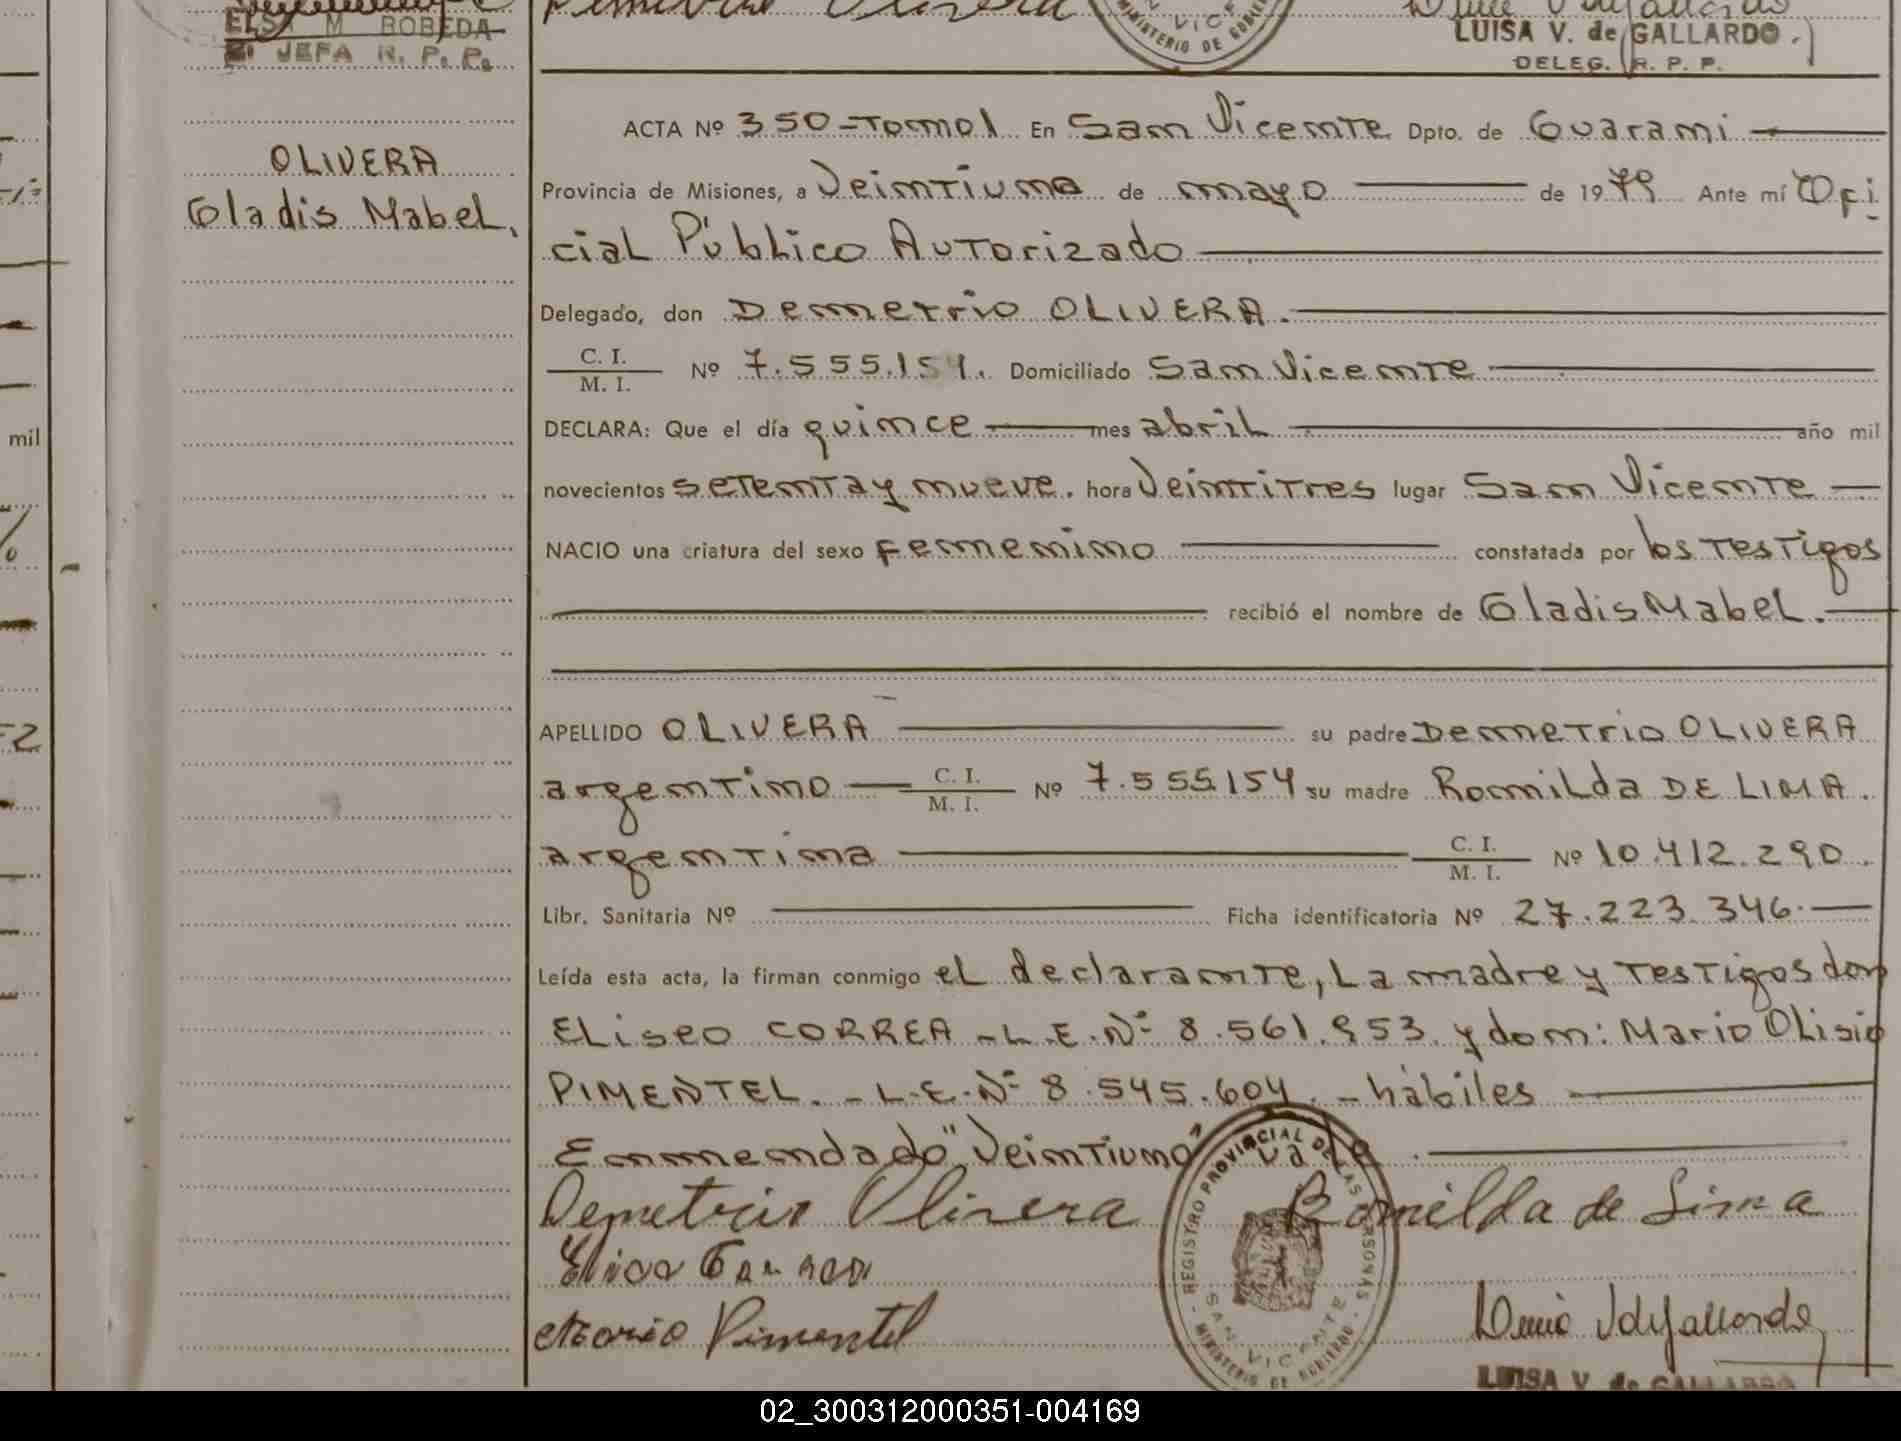 ELSA M BOBEDA
JEFA R. P. P.
Demetrio Olivera
VICE
MINISTERIO DE GOBIER
LUISA V. de GALLARDO
DELEG. R. P. P.
OLIVERA
Gladis Mabel,
mil
ACTA Nº 350-Tomo1 En San Vicente Dpto. de Guarani
Provincia de Misiones, a Veintiuno de mayo de 1979 Ante mí Ofi
cial Público Autorizado
Delegado, don Demetrio OLIVERA.
C. I.
M. I. Nº 7.555.154. Domiciliado San Vicente
DECLARA: Que el día quince mes abril año mil
novecientos setenta y nueve. hora Veintitres lugar San Vicente
NACIO una criatura del sexo femenino constatada por los Testigos
recibió el nombre de Gladis Mabel.
APELLIDO OLIVERA su padre Demetrio OLIVERA
argentino C. I.
M. I. Nº 7.555.154 su madre Romilda DE LIMA.
argentina C. I.
M. I. Nº 10.412.290.
Libr. Sanitaria Nº Ficha identificatoria Nº 27.223.346.
Leída esta acta, la firman conmigo el declarante, La madre y Testigos don
ELiseo CORREA -L.E.Nº 8.561.953. y don: Mario Olisio
PIMENTEL. -L.E.Nº 8.545.604. - hábiles
Enmendado "Veintiuno" vale.
Demetrio Olivera Romilda de Lima
Mario Pimentel
REGISTRO PROVINCIAL DE LAS PERSONAS
SAN VICENTE
MINISTERIO DE GOBIERNO
LUISA V. de GALLARDO
02_300312000351-004169